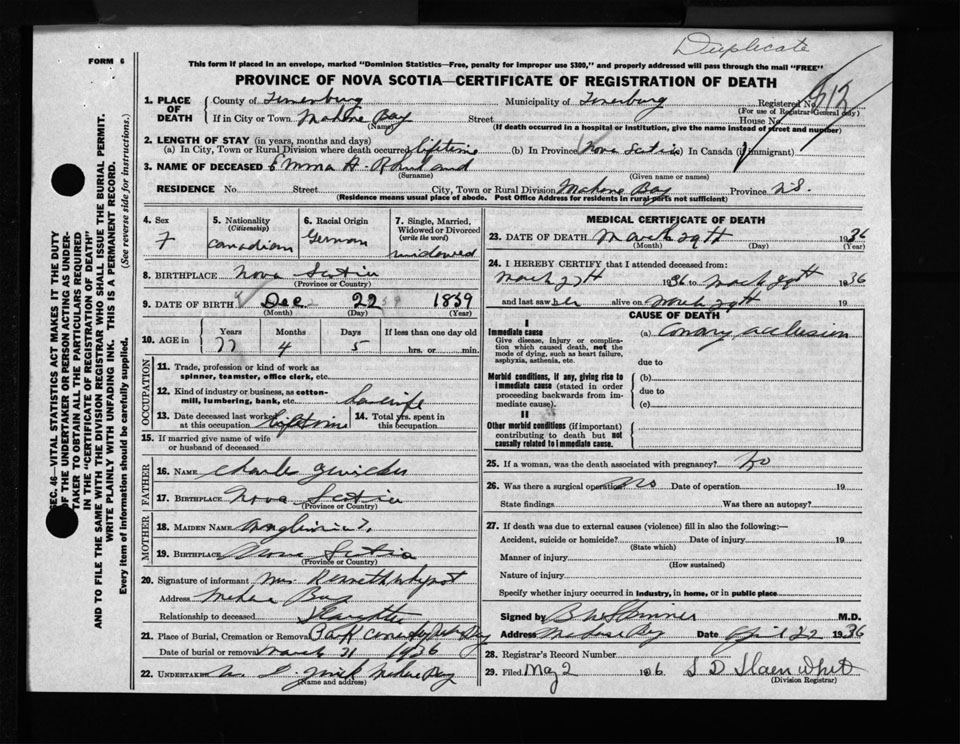 Duplicate
FORM 6
This form if placed in an envelope, marked "Dominion Statistics—Free, penalty for improper use $300," and properly addressed will pass through the mail "FREE"
PROVINCE OF NOVA SCOTIA—CERTIFICATE OF REGISTRATION OF DEATH
1. PLACE OF DEATH
County of Lunenburg Municipality of Lunenburg Registered No.
(For use of Registrar-General only)
If in City or Town Mahone Bay Street House No.
(Name) (If death occurred in a hospital or institution, give the name instead of street and number)
2. LENGTH OF STAY (in years, months and days)
(a) In City, Town or Rural Division where death occurred lifetime (b) In Province Nova Scotia In Canada (if immigrant)
3. NAME OF DECEASED Emma A.
(Surname) (Given name or names)
RESIDENCE No Street City, Town or Rural Division Mahone Bay Province N.S.
(Residence means usual place of abode. Post Office Address for residents in rural parts not sufficient)
4. Sex F
5. Nationality (Citizenship) Canadian
6. Racial Origin German
7. Single, Married, Widowed or Divorced (write the word) widowed
8. BIRTHPLACE Nova Scotia
(Province or Country)
9. DATE OF BIRTH Dec 22 1859
(Month) (Day) (Year)
10. AGE in Years 77 Months 4 Days 5 If less than one day old hrs. or min.
OCCUPATION
11. Trade, profession or kind of work as spinner, teamster, office clerk, etc.
12. Kind of industry or business, as cotton-mill, lumbering, bank, etc. housewife
13. Date deceased last worked at this occupation lifetime
14. Total yrs. spent in this occupation
15. If married give name of wife or husband of deceased
FATHER
16. NAME Charles
17. BIRTHPLACE Nova Scotia
MOTHER
18. MAIDEN NAME
19. BIRTHPLACE Nova Scotia
(Province or Country)
20. Signature of informant Mrs Kenneth Whynot
Address Mahone Bay
Relationship to deceased Daughter
21. Place of Burial, Cremation or Removal Park Cemetery
Date of burial or removal March 31 1936
22. UNDERTAKER Mahone Bay
(Name and address)
MEDICAL CERTIFICATE OF DEATH
23. DATE OF DEATH March 29th 1936
(Month) (Day) (Year)
24. I HEREBY CERTIFY that I attended deceased from:
March 27th 1936 to March 29th 1936
and last saw her alive on March 29th 19
CAUSE OF DEATH
I
Immediate cause
Give disease, injury or complication which caused death, not the mode of dying, such as heart failure, asphyxia, asthenia, etc.
(a) Coronary occlusion
due to
Morbid conditions, if any, giving rise to immediate cause (stated in order proceeding backwards from immediate cause).
(b)
due to
(c)
II
Other morbid conditions (if important) contributing to death but not causally related to immediate cause.
25. If a woman, was the death associated with pregnancy? No
26. Was there a surgical operation no Date of operation 19
State findings Was there an autopsy?
27. If death was due to external causes (violence) fill in also the following:—
Accident, suicide or homicide? Date of injury 19
(State which)
Manner of injury
(How sustained)
Nature of injury
Specify whether injury occurred in industry, in home, or in public place
Signed by M.D.
Address Mahone Bay Date April 22 1936
28. Registrar's Record Number
29. Filed May 2 1936
(Division Registrar)
SEC. 46—VITAL STATISTICS ACT MAKES IT THE DUTY
OF THE UNDERTAKER OR PERSON ACTING AS UNDER-
TAKER TO OBTAIN ALL THE PARTICULARS REQUIRED
IN THE "CERTIFICATE OF REGISTRATION OF DEATH"
AND TO FILE THE SAME WITH THE DIVISION REGISTRAR WHO SHALL ISSUE THE BURIAL PERMIT.
WRITE PLAINLY WITH UNFADING INK. THIS IS A PERMANENT RECORD.
Every item of information should be carefully supplied. (See reverse side for instructions.)